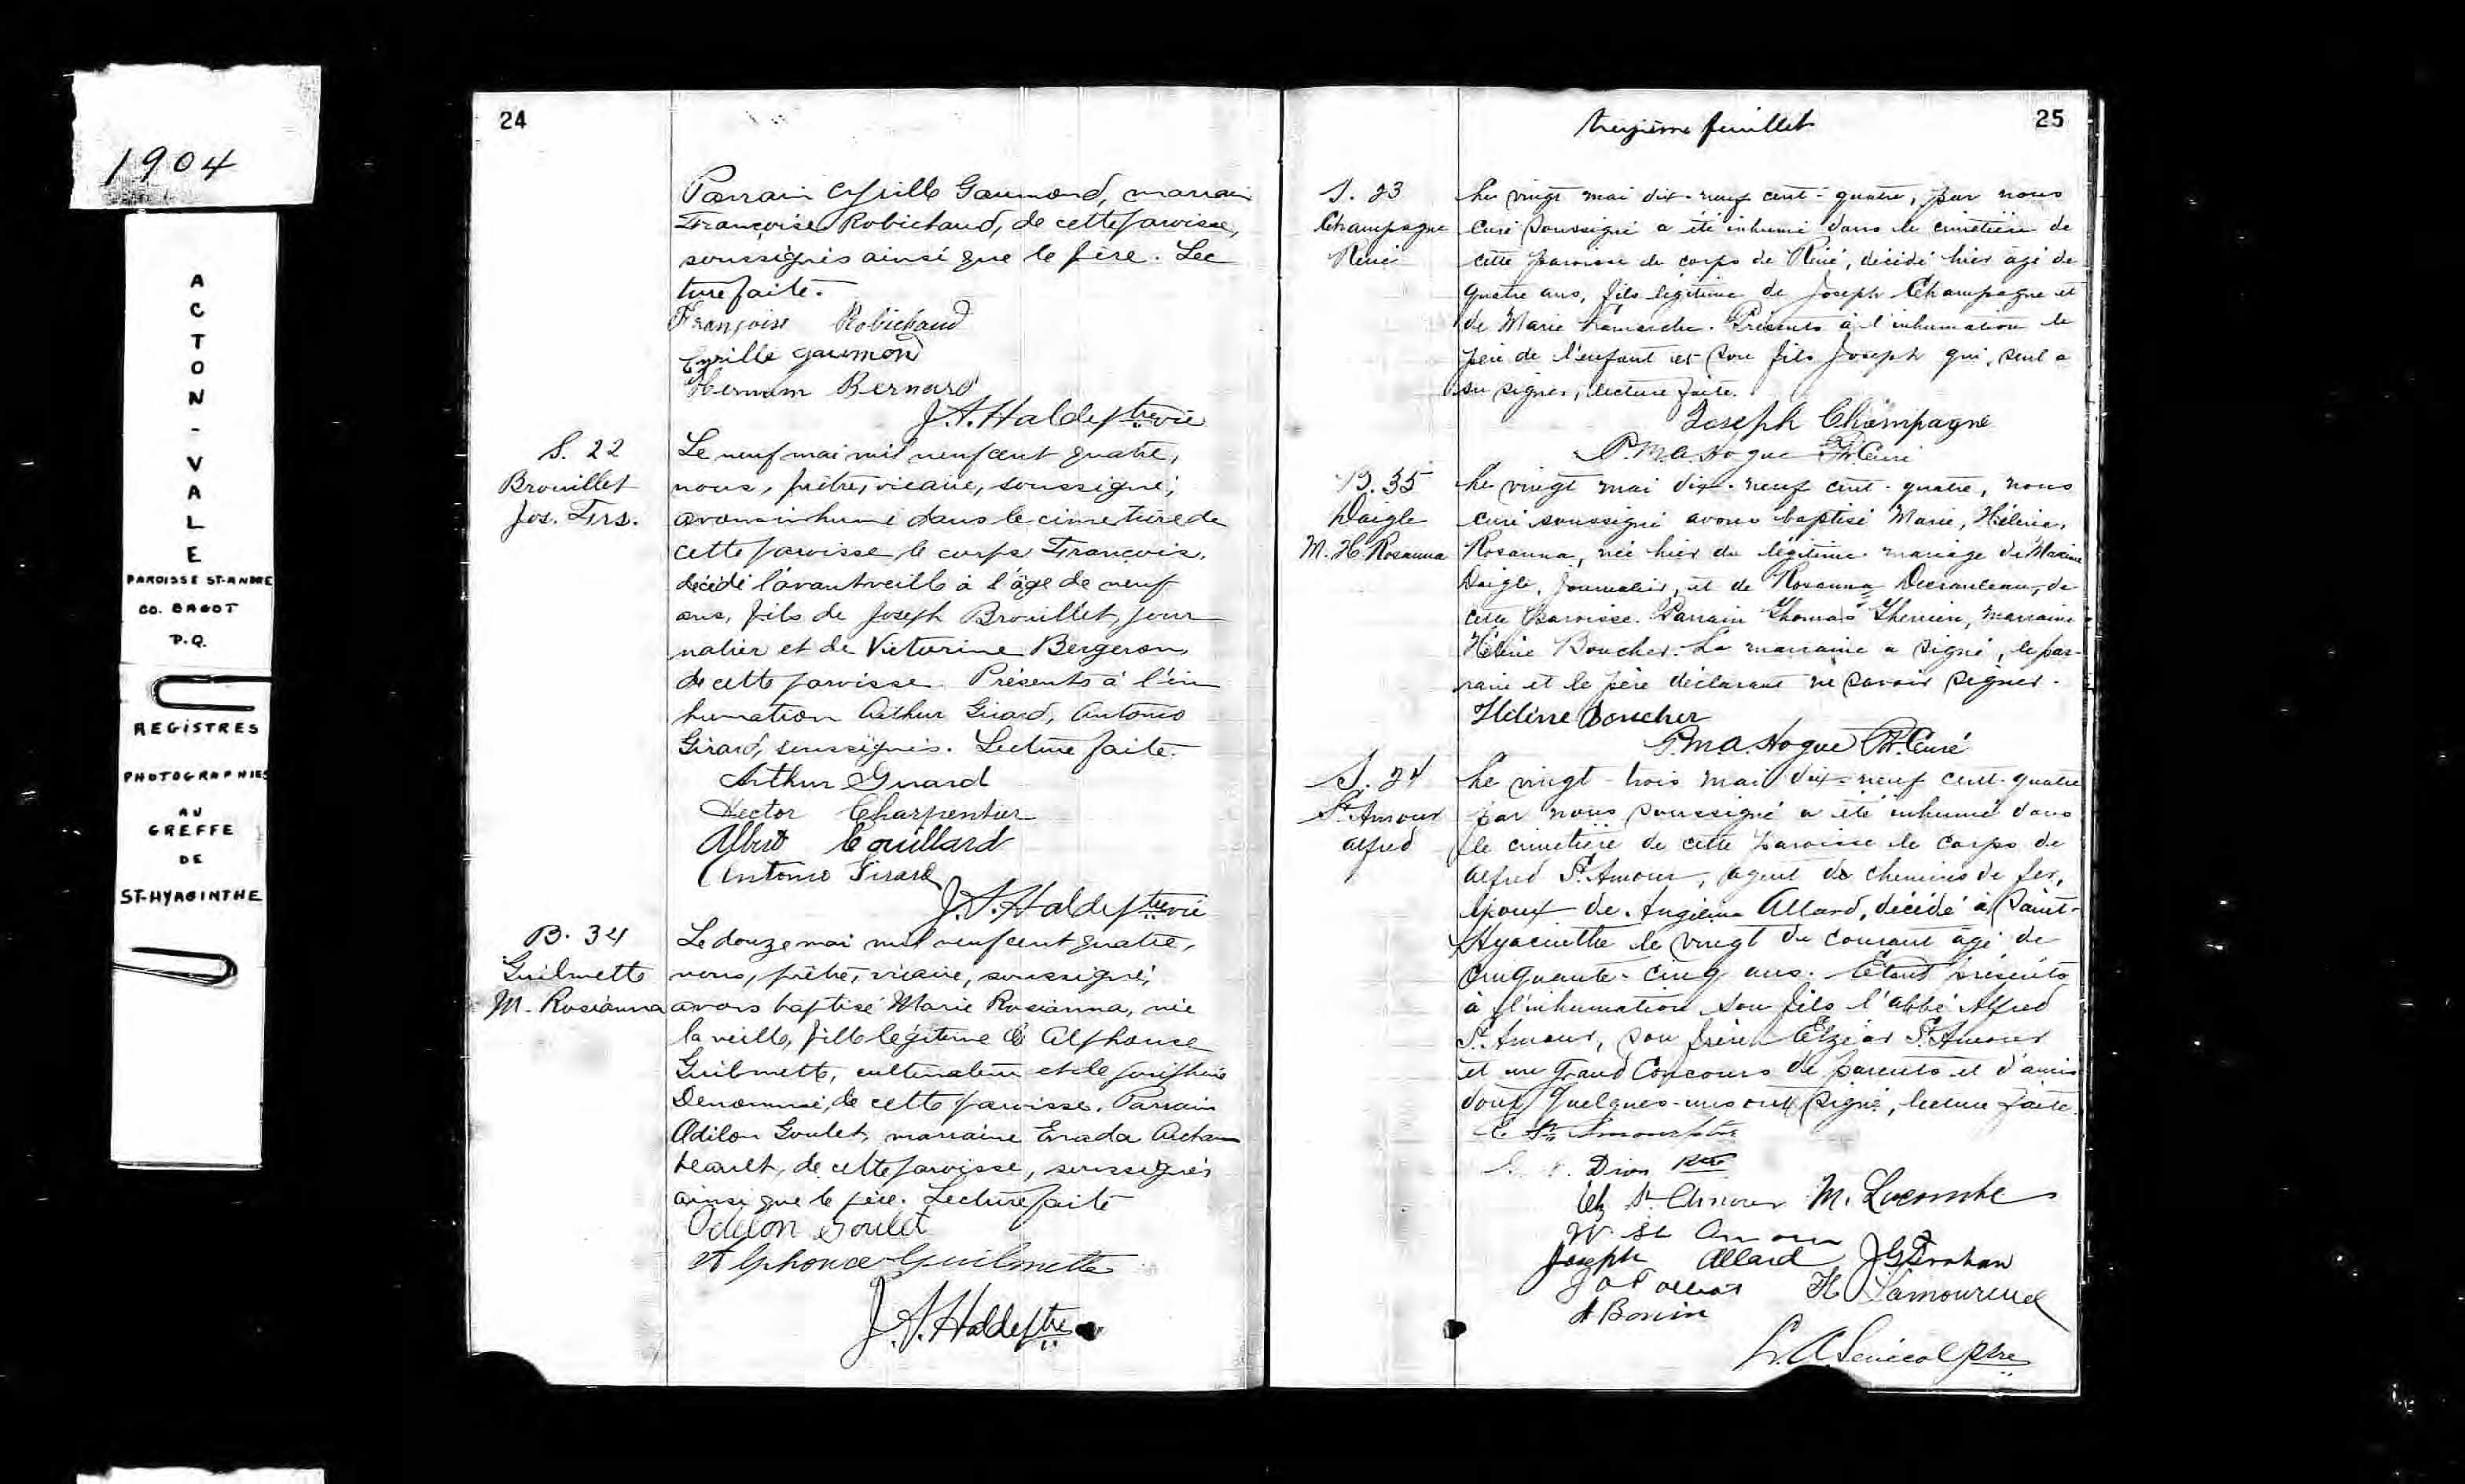 1904
ACTON-VALE
PAROISSE ST-ANDRE
CO. BAGOT
P.Q.
REGISTRES
PHOTOGRAPHIES
AU
GREFFE
DE
ST-HYACINTHE
24
Parrain Cyrille Gaumond, marraine
Françoise Robichaud, de cette paroisse,
soussignés ainsi que le père. Lec
ture faite.
Françoise Robichaud
Cyrille Gaumond
Bernard
S. 22
Brouillet
Jos. Frs.
Le neuf mai mil neuf cent quatre,
nous, prêtre, vicaire, soussigné,
avons inhumé dans le cimetière de
cette paroisse le corps François,
décédé l'avant veille à l'âge de neuf
ans, fils de Joseph Brouillet, jour
nalier et de Victorine Bergeron
de cette paroisse. Présents à l'in
humation Arthur Girard, Antonio
Girard, soussignés. Lecture faite.
Arthur Girard
Hector Charpentier
Albert Couillard
Antonio Girard
B. 34
Guilmette
M. Rosianna
Le douze mai mil neuf cent quatre,
nous, prêtre, vicaire, soussigné,
avons baptisé Marie Rosianna, née
la veille, fille légitime d'Alphonse
Guilmette, cultivateur et de Josephine
Denommé, de cette paroisse. Parrain
Odilon Goulet, marraine Archam
beault, de cette paroisse, soussignés
ainsi que le père. Lecture faite
Odilon Goulet
Alphonse Guilmette
treizième feuillet
25
S. 23
Champagne
René
Le vingt mai dix-neuf cent-quatre, par nous
Curé soussigné a été inhumé dans le cimetière de
cette paroisse le corps de René, décédé hier âgé de
quatre ans, fils légitime de Joseph Champagne et
de Marie Lamarche. Présents à l'inhumation le
père de l'enfant et son fils Joseph qui, seul a
su signer, lecture faite.
Joseph Champagne
P.M.A. Hogue Ptr. Curé
B. 35
Daigle
M. H. Rosanna
Le vingt mai dix-neuf cent-quatre, nous
curé soussigné avons baptisé Marie, Hélène,
Rosanna, née hier du légitime mariage de Maxime
Daigle, journalier, et de Rosanna de
cette paroisse. Parrain Thomas Therrien, marraine
Hélène Boucher. La marraine a signé, le par-
rain et le père déclarant ne savoir signer.
Hélène Boucher
P.M.A. Hogue Ptr. Curé
S. 24
St. Amour
Alfred
Le vingt-trois mai dix-neuf cent-quatre
par nous soussigné a été inhumé dans
le cimetière de cette paroisse le corps de
Alfred St. Amour, agent de chemins de fer,
époux de Allard, décédé à Saint-
Hyacinthe le vingt du courant âgé de
cinquante-cinq ans. Etant présents
à l'inhumation son fils l'abbé Alfred
St. Amour, son frère Elzéar St. Amour
et un grand concours de parents et d'amis
dont quelques-uns ont signé, lecture faite.
St. Amour ptre
Dion
Elz St. Amour M. Lacombe
W St Amour
Joseph Allard
H Lamoureux
A Bonin
Senécal ptre